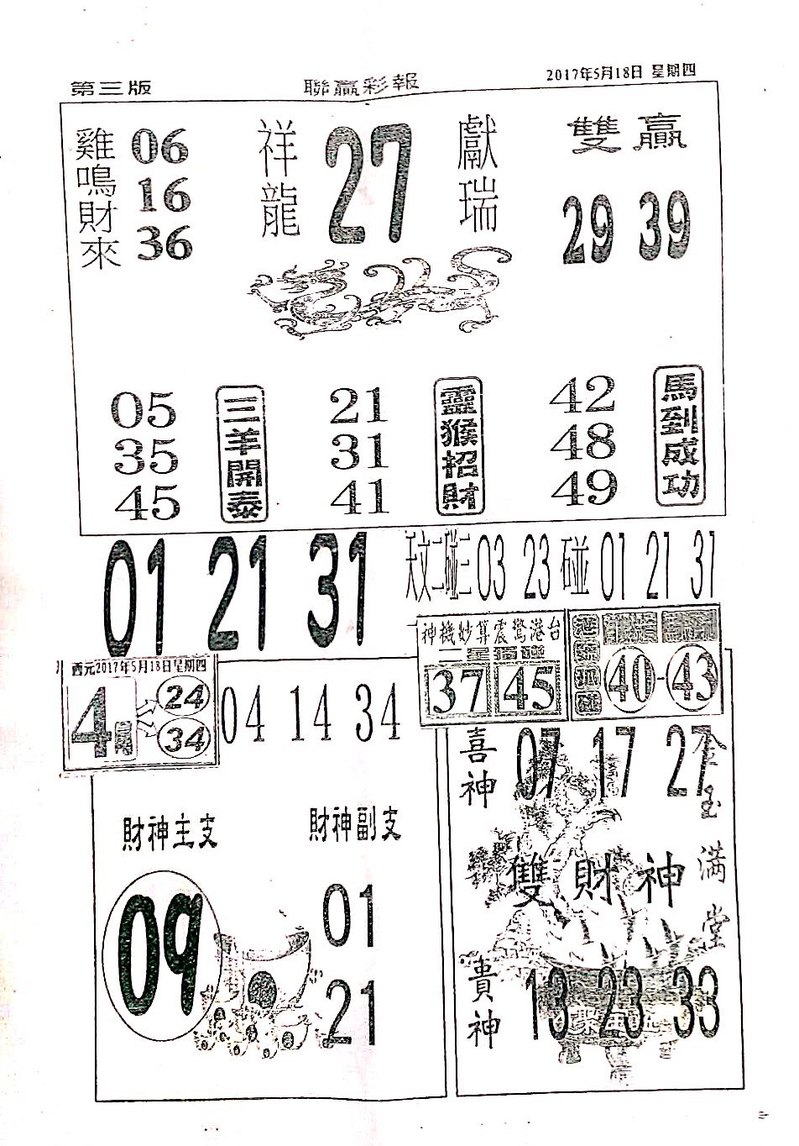 第三版
聯贏彩報
2017年5月18日 星期四
雞鳴財來
06
16
36
祥龍
27
獻瑞
雙贏
29 39
05
35
45
三羊開泰
21
31
41
靈猴招財
42
48
49
馬到成功
01 21 31
天文二碰三 03 23 碰 01 21 31
神機妙算震驚港台
37 45
40-43
西元2017年5月18日星期四
4
24
34
04 14 34
財神主支
09
財神副支
01
21
喜神
07 17 27
金玉滿堂
雙財神
貴神
13 23 33